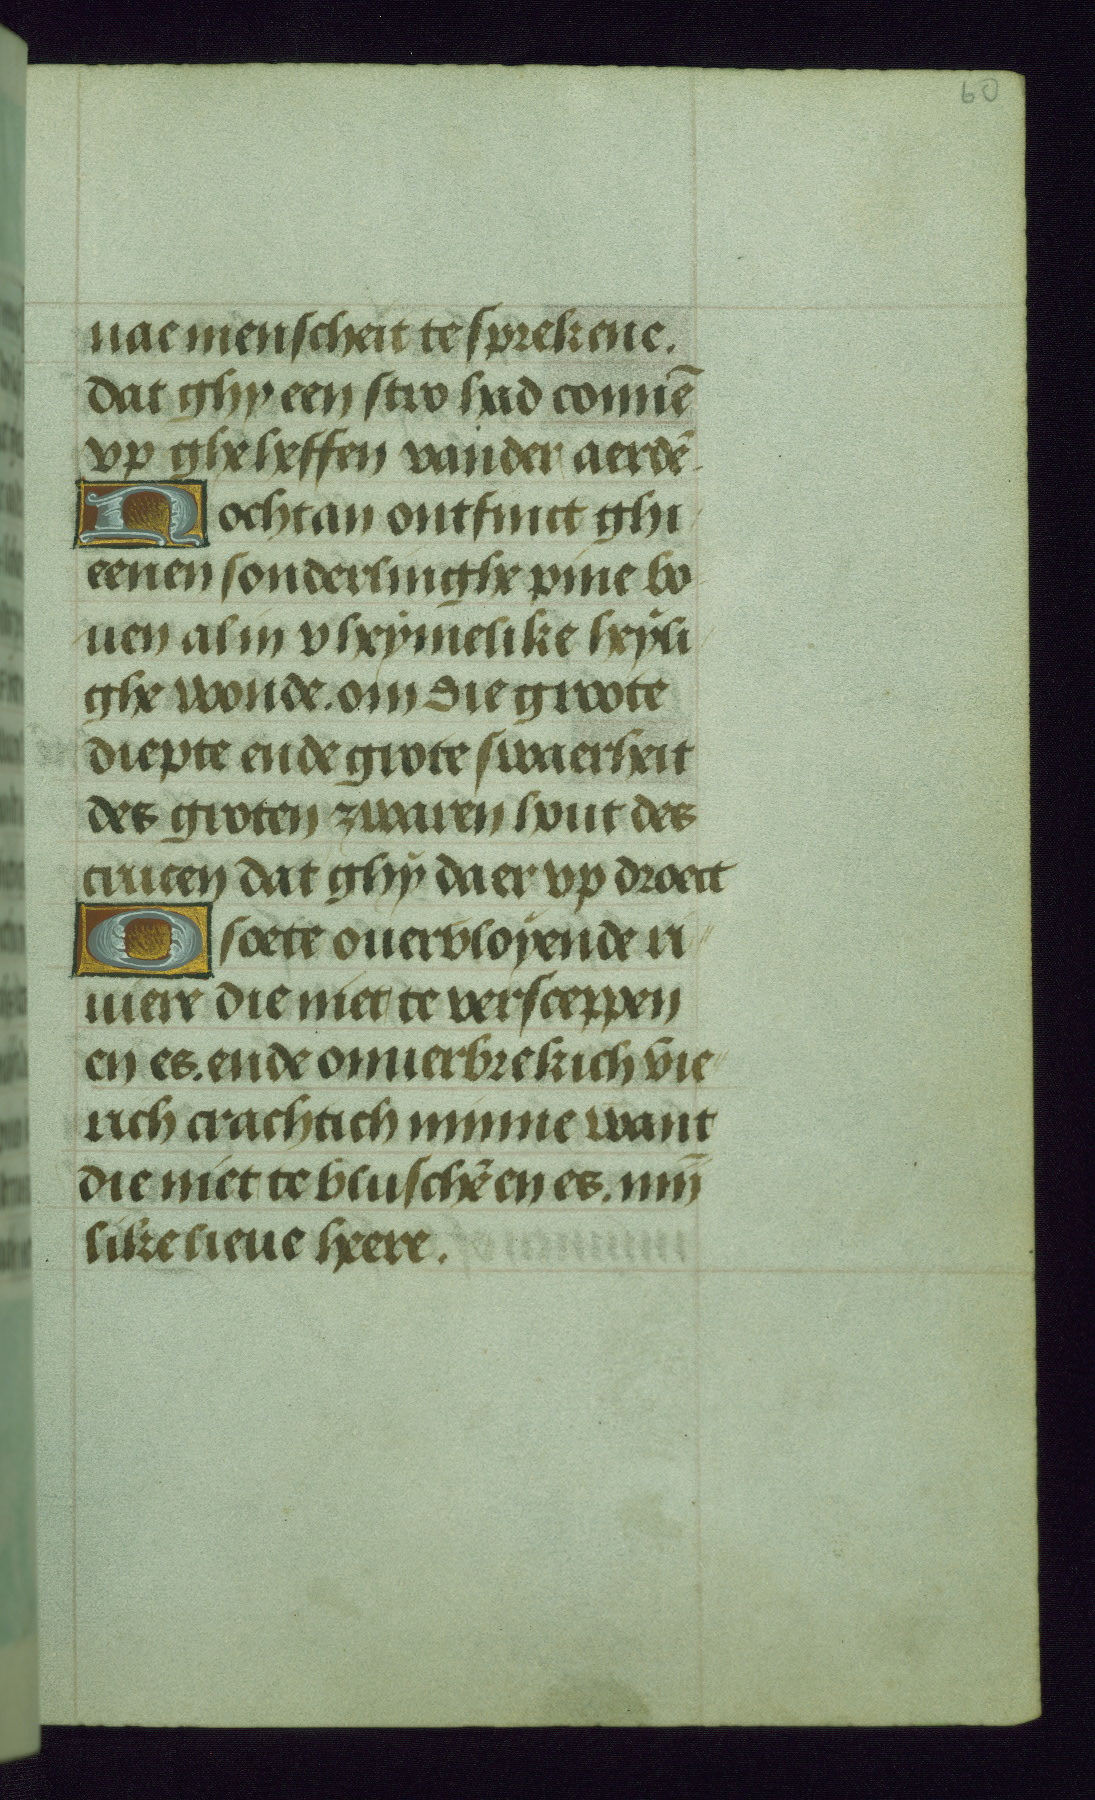 60
nae menscheit te sprekene.
dat ghy een stro had connē
vp gheheffen vander aerdē.
Nochtan ontfinct ghi
eenen sonderlinghe pine bo
uen al in v heymelike heyli
ghe wonde. om die groote
diepte ende grote swaerheit
des groten zwaren hout des
crucen dat ghy daer vp droect
O soete oueruloyende ri
uiere die niet te versceppen
en es. ende onuerbrekich vie
rich crachtich minne want
die niet te bluschē en es. min̄
like lieue heere.